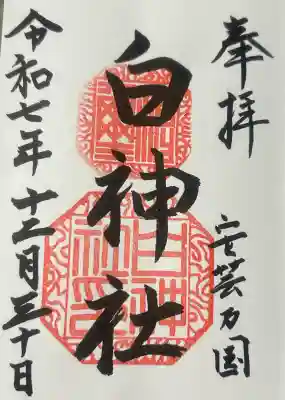 奉拝
安芸乃国
白神社
令和七年十二月三十日